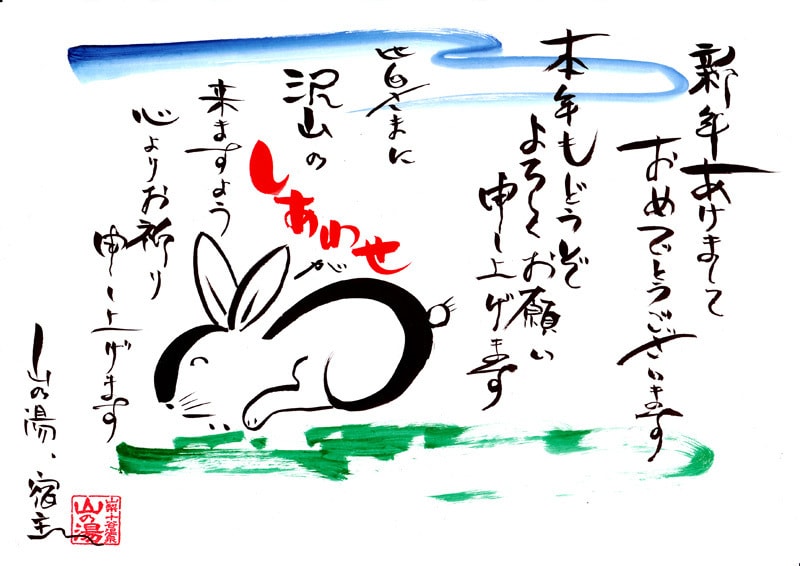 新年あけまして
おめでとうございます
本年もどうぞ
よろしくお願い
申し上げます
皆さまに
沢山の
しあわせ
が
来ますよう
心よりお祈り
申し上げます
山の湯、宿主
山の湯